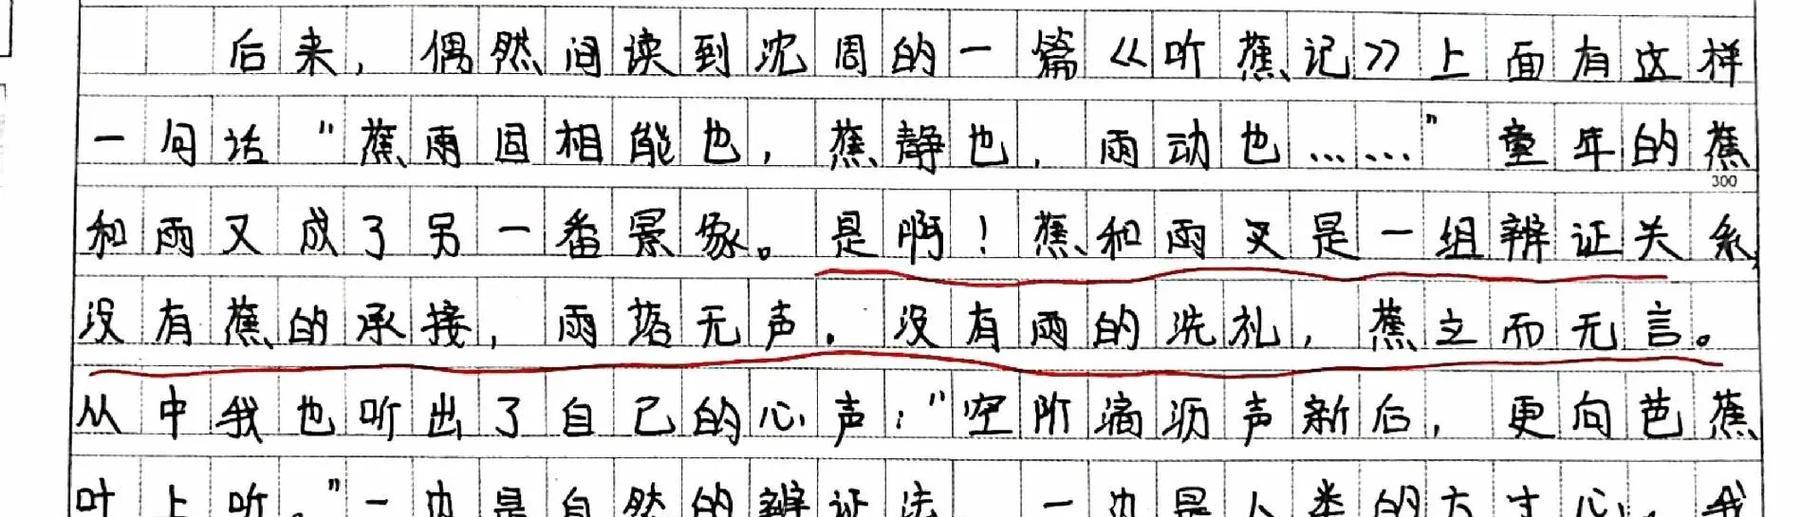 后来，偶然间读到沈周的一篇《听蕉记》上面有这样
一句话“蕉雨固相能也，蕉静也，雨动也……”童年的蕉
300
和雨又成了另一番景象。是啊！蕉和雨又是一组辨证关系，
没有蕉的承接，雨落无声。没有雨的洗礼，蕉立而无言。
从中我也听出了自己的心声：“空阶滴沥声新后，更向芭蕉
叶上听。”一边是自然的辨证法 一边是人类的方寸心。我